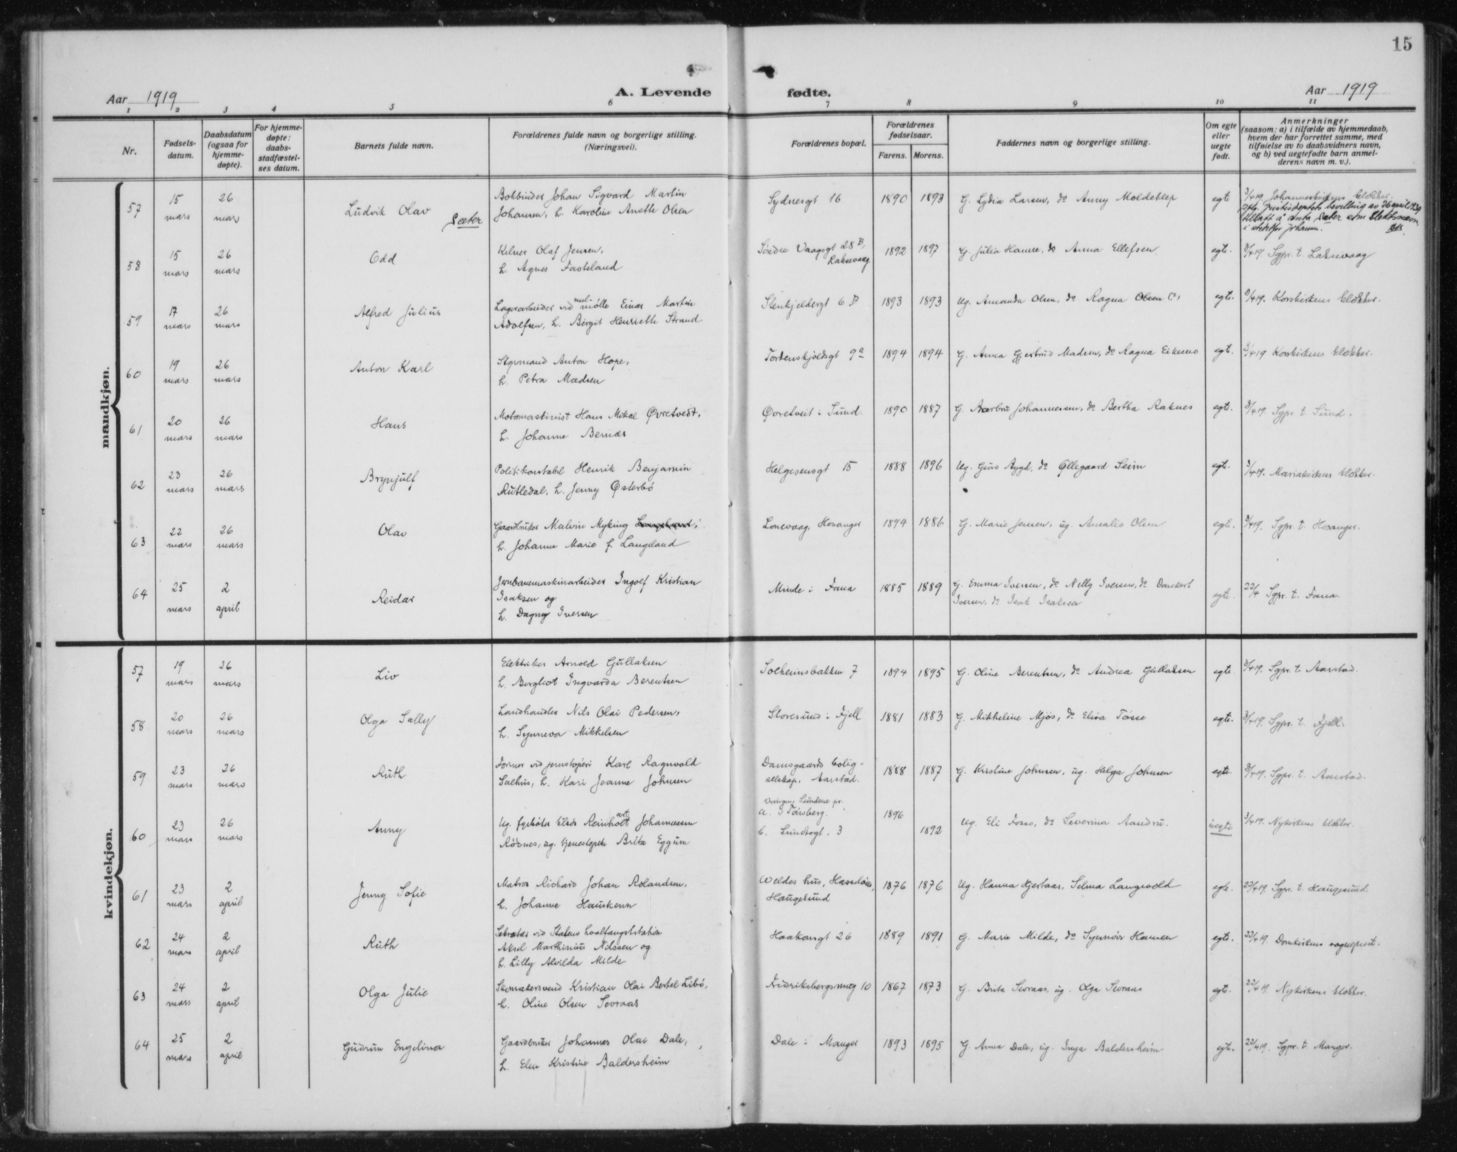 15
Aar 1919
A. Levende fødte.
Aar 1919
1 2 3 4 5 6 7 8 9 10 11
Nr.
Fødsels-
datum.
Daabsdatum
(ogsaa for
hjemme-
døpte).
For hjemme-
døpte:
daabs-
stadfæstel-
ses datum.
Barnets fulde navn.
Forældrenes fulde navn og borgerlige stilling.
(Næringsvei).
Forældrenes bopæl.
Forældrenes
fødselsaar.
Farens. Morens.
Faddernes navn og borgerlige stilling.
Om egte
eller
uegte
født.
Anmerkninger
(saasom: a) i tilfælde av hjemmedaab,
hvem der har forrettet samme, med
tilføielse av to daabsvidners navn,
og b) ved uegtefødte barn anmel-
derens navn m. v.).
mandkjøn.
57 15 mars 26 mars Ludvik Olav Sæter
Bokbinder Johan Sigvard Martin
Johansen, h. Karoline Anette Olsen
Sydnesgt 16 1890 1893 G. Lydia Larsen, do Anny Moldeklep egte
58 15 mars 26 mars Odd
Kelner Olaf Jensen,
h. Agnes Fasteland
Søndre Vaagsgt 28 B,
Laksevaag
1892 1897 G. Julia Hansen, do Anna Ellefsen egt. Sgpr. t. Laksevaag
59 17 mars 26 mars Alfred Julius
Lagerarbeider ved mølle Einar Martin
Adolfsen, h. Birgit Henriette Strand
Stenkjeldergt 6 1893 1893 Ug. Amanda Olsen, do Ragna Olsen egt. Korskirkens klokker.
60 19 mars 26 mars Anton Karl
Styrmand Anton Hope,
h. Petra Madsen
Tordenskjoldsgt 9a 1894 1894 G. Anna Gjertrud Madsen, do Ragna egt. Korskirkens klokker.
61 20 mars 26 mars Hans
Motormaskinist Hans Mikal Øvretveit,
h. Johanne Bernes
Øvretveit i Sund 1890 1887 G. Johannessen, do Bertha Raknes egt. Sgpr. t. Sund.
62 23 mars 26 mars Brynjulf
Politikonstabel Henrik Benjamin
Rutledal, h. Jenny Østerbø
Helgesensgt 15 1888 1896 Ug. do Øllegaard Seim egt. Mariakirkens klokker.
63 22 mars 26 mars Olav
Gaardbruker Malvin Myking
h. Johanne Marie f. Langeland
Lonevaag, Hosanger 1894 1886 G. Marie Jensen, ug. Amalie Olsen egt. Sgpr. t. Hosanger.
64 25 mars 2 april Reidar
Jernbanemaskinarbeider Ingolf Kristian
Isaksen og
h. Dagny Iversen
Minde i Fana 1885 1889 G. Emma Iversen, do Nelly Iversen, do Danckert
Iversen, do Isak Isaksen egte. 22/4 Sgpr. t. Fana
kvindekjøn.
57 19 mars 26 mars Liv
Elektriker Arnold Gullaksen
h. Borghot Ingvarda Berentsen
Solheimsbakken 7 1894 1895 G. Oline Berentsen, do Andrea Gullaksen egte Sgpr. t. Aarstad.
58 20 mars 26 mars Olga Sally
Landhandler Nils Olai Pedersen,
h. Synneva Mikkelsen
Storesund i Fjell 1881 1883 G. Mikkeline Mjøs, do Elisa Tøsse egte. Sgpr. t. Fjell.
59 23 mars 26 mars Ruth
Former ved jernstøperi Karl Ragnvald
Salhus, h. Kari Joanne Johnsen
Damsgaards bolig-
selskap, Aarstad.
1888 1887 G. Kristine Johnsen, ug. Helga Johnsen egte Sgpr. t. Aarstad.
60 23 mars 26 mars Anny
Ug. fyrbøter Elias Reinholt Johannesen
Røsnes, ug. tjenestepike Brita Eggum
b. Lundsgt. 3
1896 1892 Ug. Eli Foss, do Severina uegte Nykirkens klokker.
61 23 mars 2 april Jenny Sofie
Matros Richard Johan Rolandsen,
h. Johanne Hauskenn
Weldes hus, Hasseløen,
Haugesund
1876 1876 Ug. Hanna Gjertsas, Selma Langvold egte. 22/4 19 Sgpr. t. Haugesund
62 24 mars 2 april Ruth
ved Statens
Aksel Marthinius Nilssen og
h. Lilly Alvilda Milde
Haakonsgt 26 1889 1891 G. Marie Milde, do Synnøve Hansen egte. 22/4 19 Domkirkens sogneprest.
63 24 mars 2 april Olga Julie
Skomakersvend Kristian Olai Bertel Libø,
h. Oline Olsen Sevraas
Fredriksbergsveg 10 1867 1873 G. Brita Sevraas, ug. Olga Sevraas egt. 22/4 19. Nykirkens klokker.
64 25 mars 2 april Gudrun Engelina
Gaardbruker Johannes Olai Dale,
h. Elen Kristine Baldersheim
Dale i Manger 1893 1895 G. Anna Dale, ug. Inga Baldersheim egt. 22/4 19. Sgpr. t. Manger.